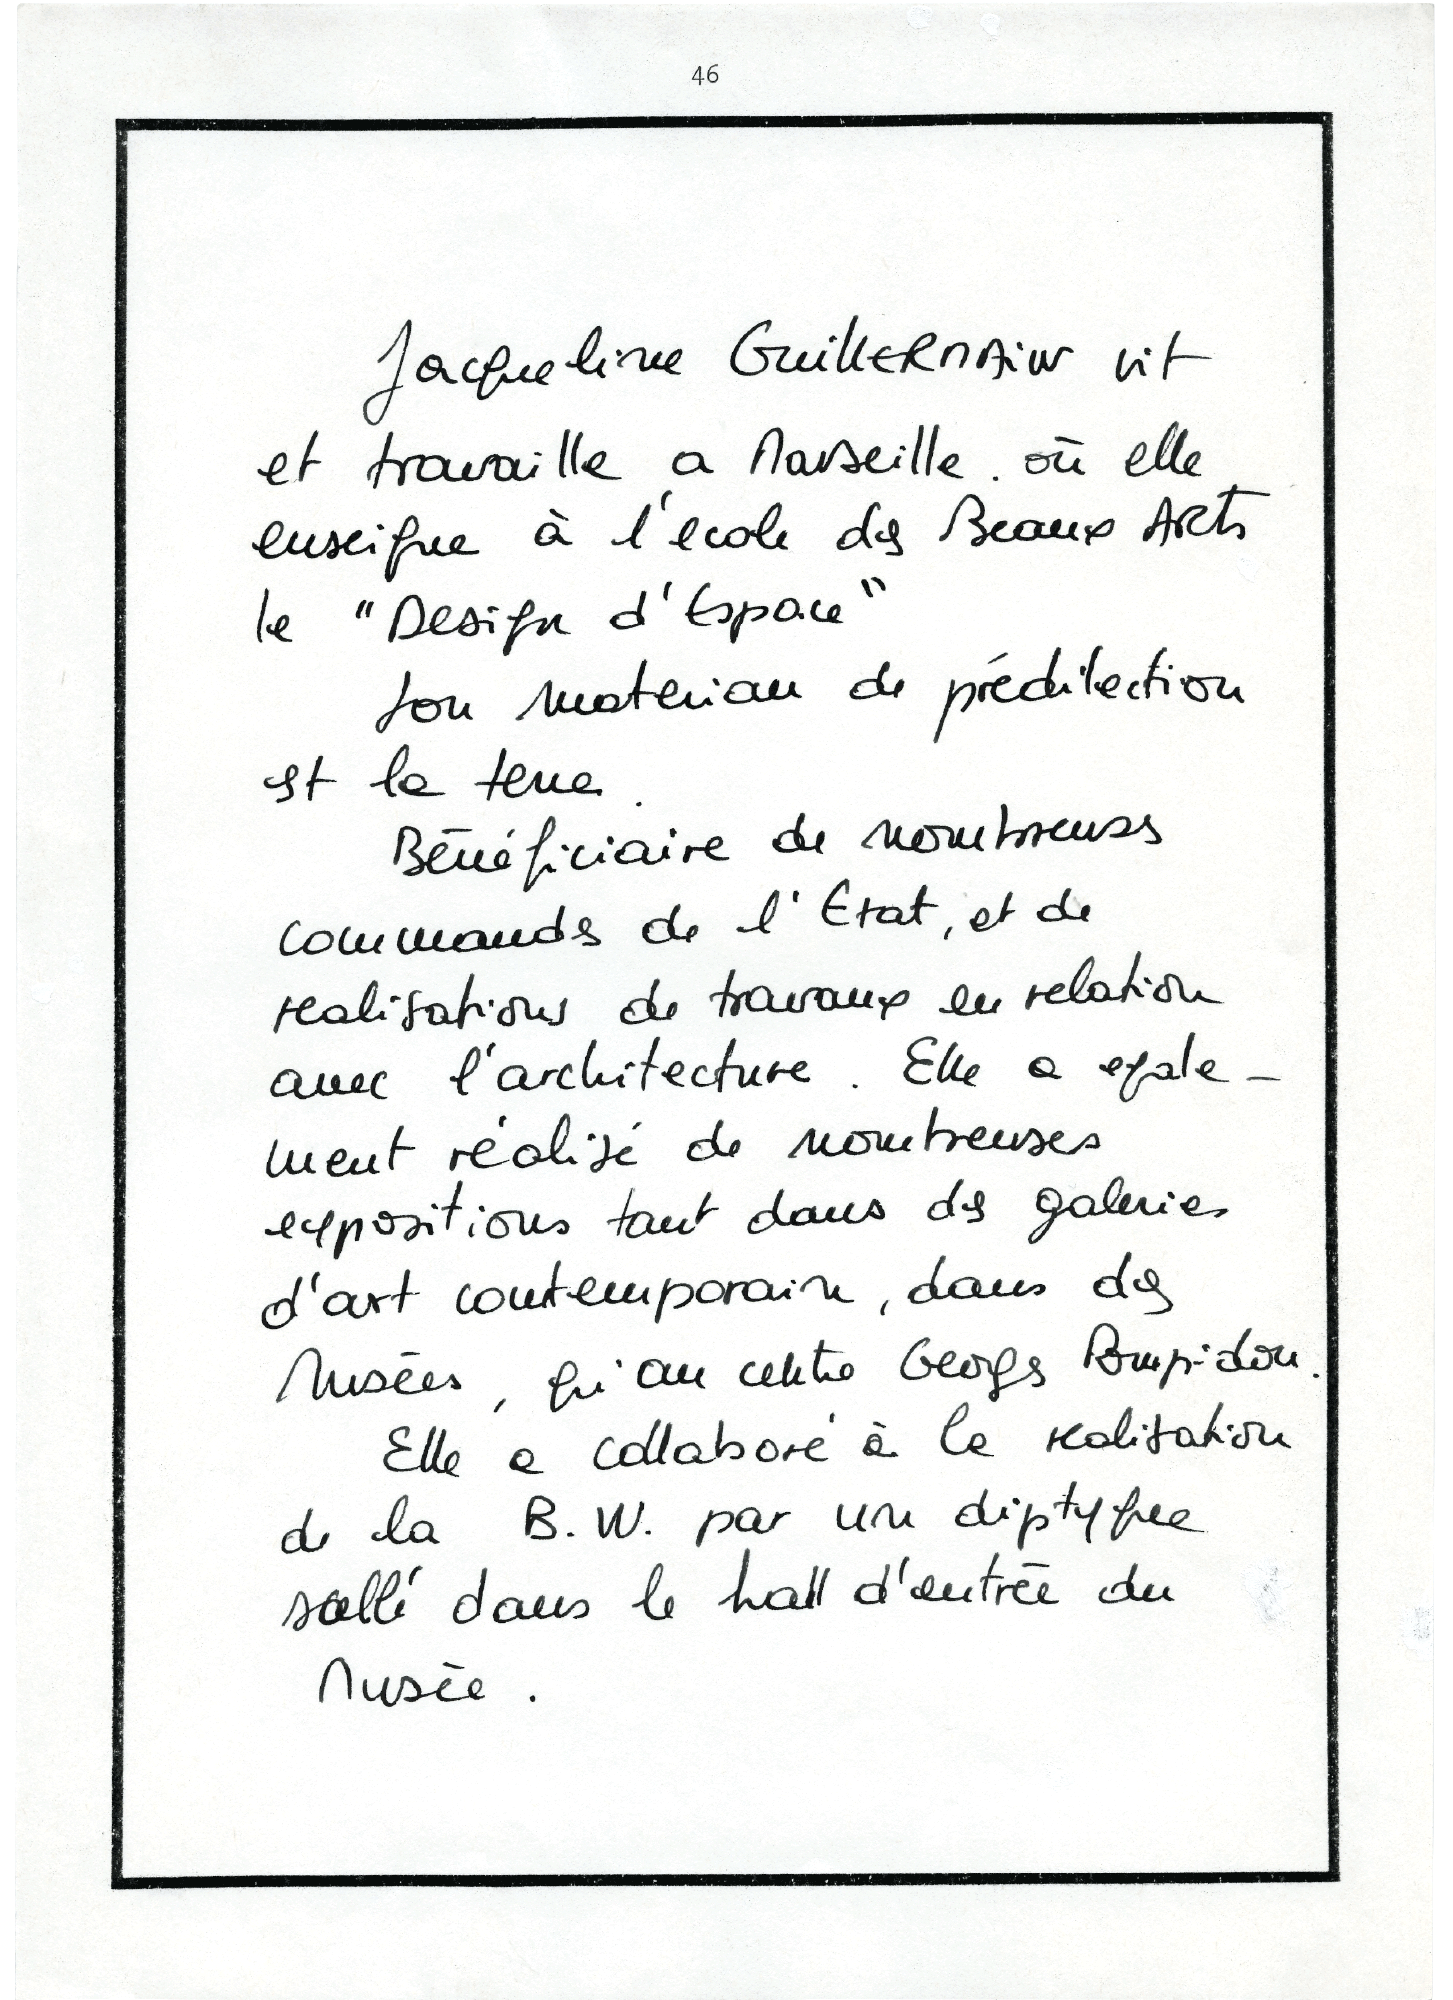 46
Jacqueline GuillERMAiN vit
et travaille a Marseille. où elle
enseigne à l'école des Beaux ARts
le "Design d'Espace"
Son materiau de prédilection
est la terre.
Bénéficiaire de nombreuses
commandes de l'Etat, et de
realisations de travaux en relation
avec l'architecture. Elle a egale-
ment réalisé de nombreuses
expositions tant dans des galeries
d'art contemporain, dans des
Musées, qu'au centre Georges Pompidou.
Elle a collaboré à la realisation
de la B.W. par un diptyque
scellé dans le hall d'entrée du
Musée.